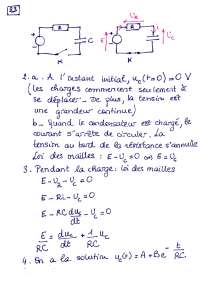 23
R
C
K
E
R
K
U_R
U_C
2. a. A l'instant initial, u_c(t=0) = 0 V
(les charges commencent seulement à
se déplacer - De plus, la tension est
une grandeur continue)
b - Quand le condensateur est chargé, le
courant s'arrête de circuler. La
tension au bord de la résistance s'annule
Loi des mailles : E - U_C = 0 E = U_C
3. Pendant la charge : loi des mailles
E - U_R - U_C = 0
E - Ri - U_C = 0
E - RC du_c/dt - U_C = 0
E/RC = du_c/dt + 1/RC u_c
4. On a la solution u_c(t) = A + B e^(-t/RC)